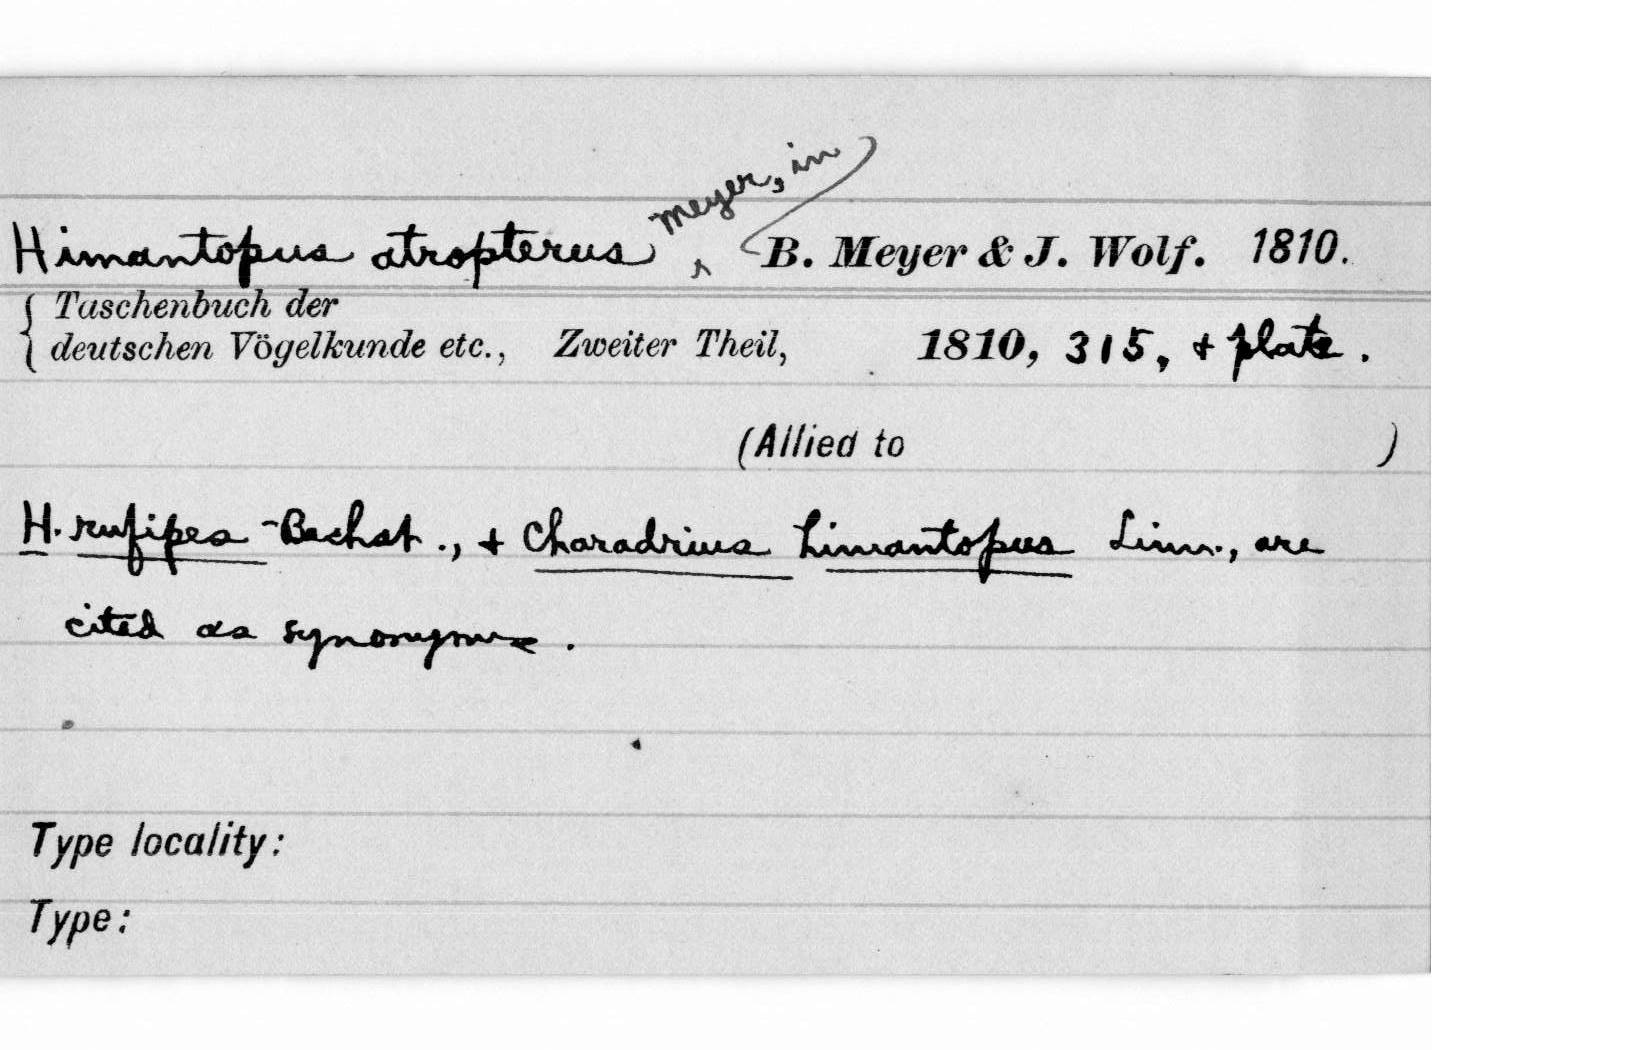 Himantopus atropterus Meyer, in B. Meyer & J. Wolf. 1810.
Taschenbuch der
deutschen Vögelkunde etc., Zweiter Theil, 1810, 315, + plate.
(Allied to )
H. rufipes Bechst., + Charadrius himantopus Linn., are
cited as synonyms.
Type locality:
Type: